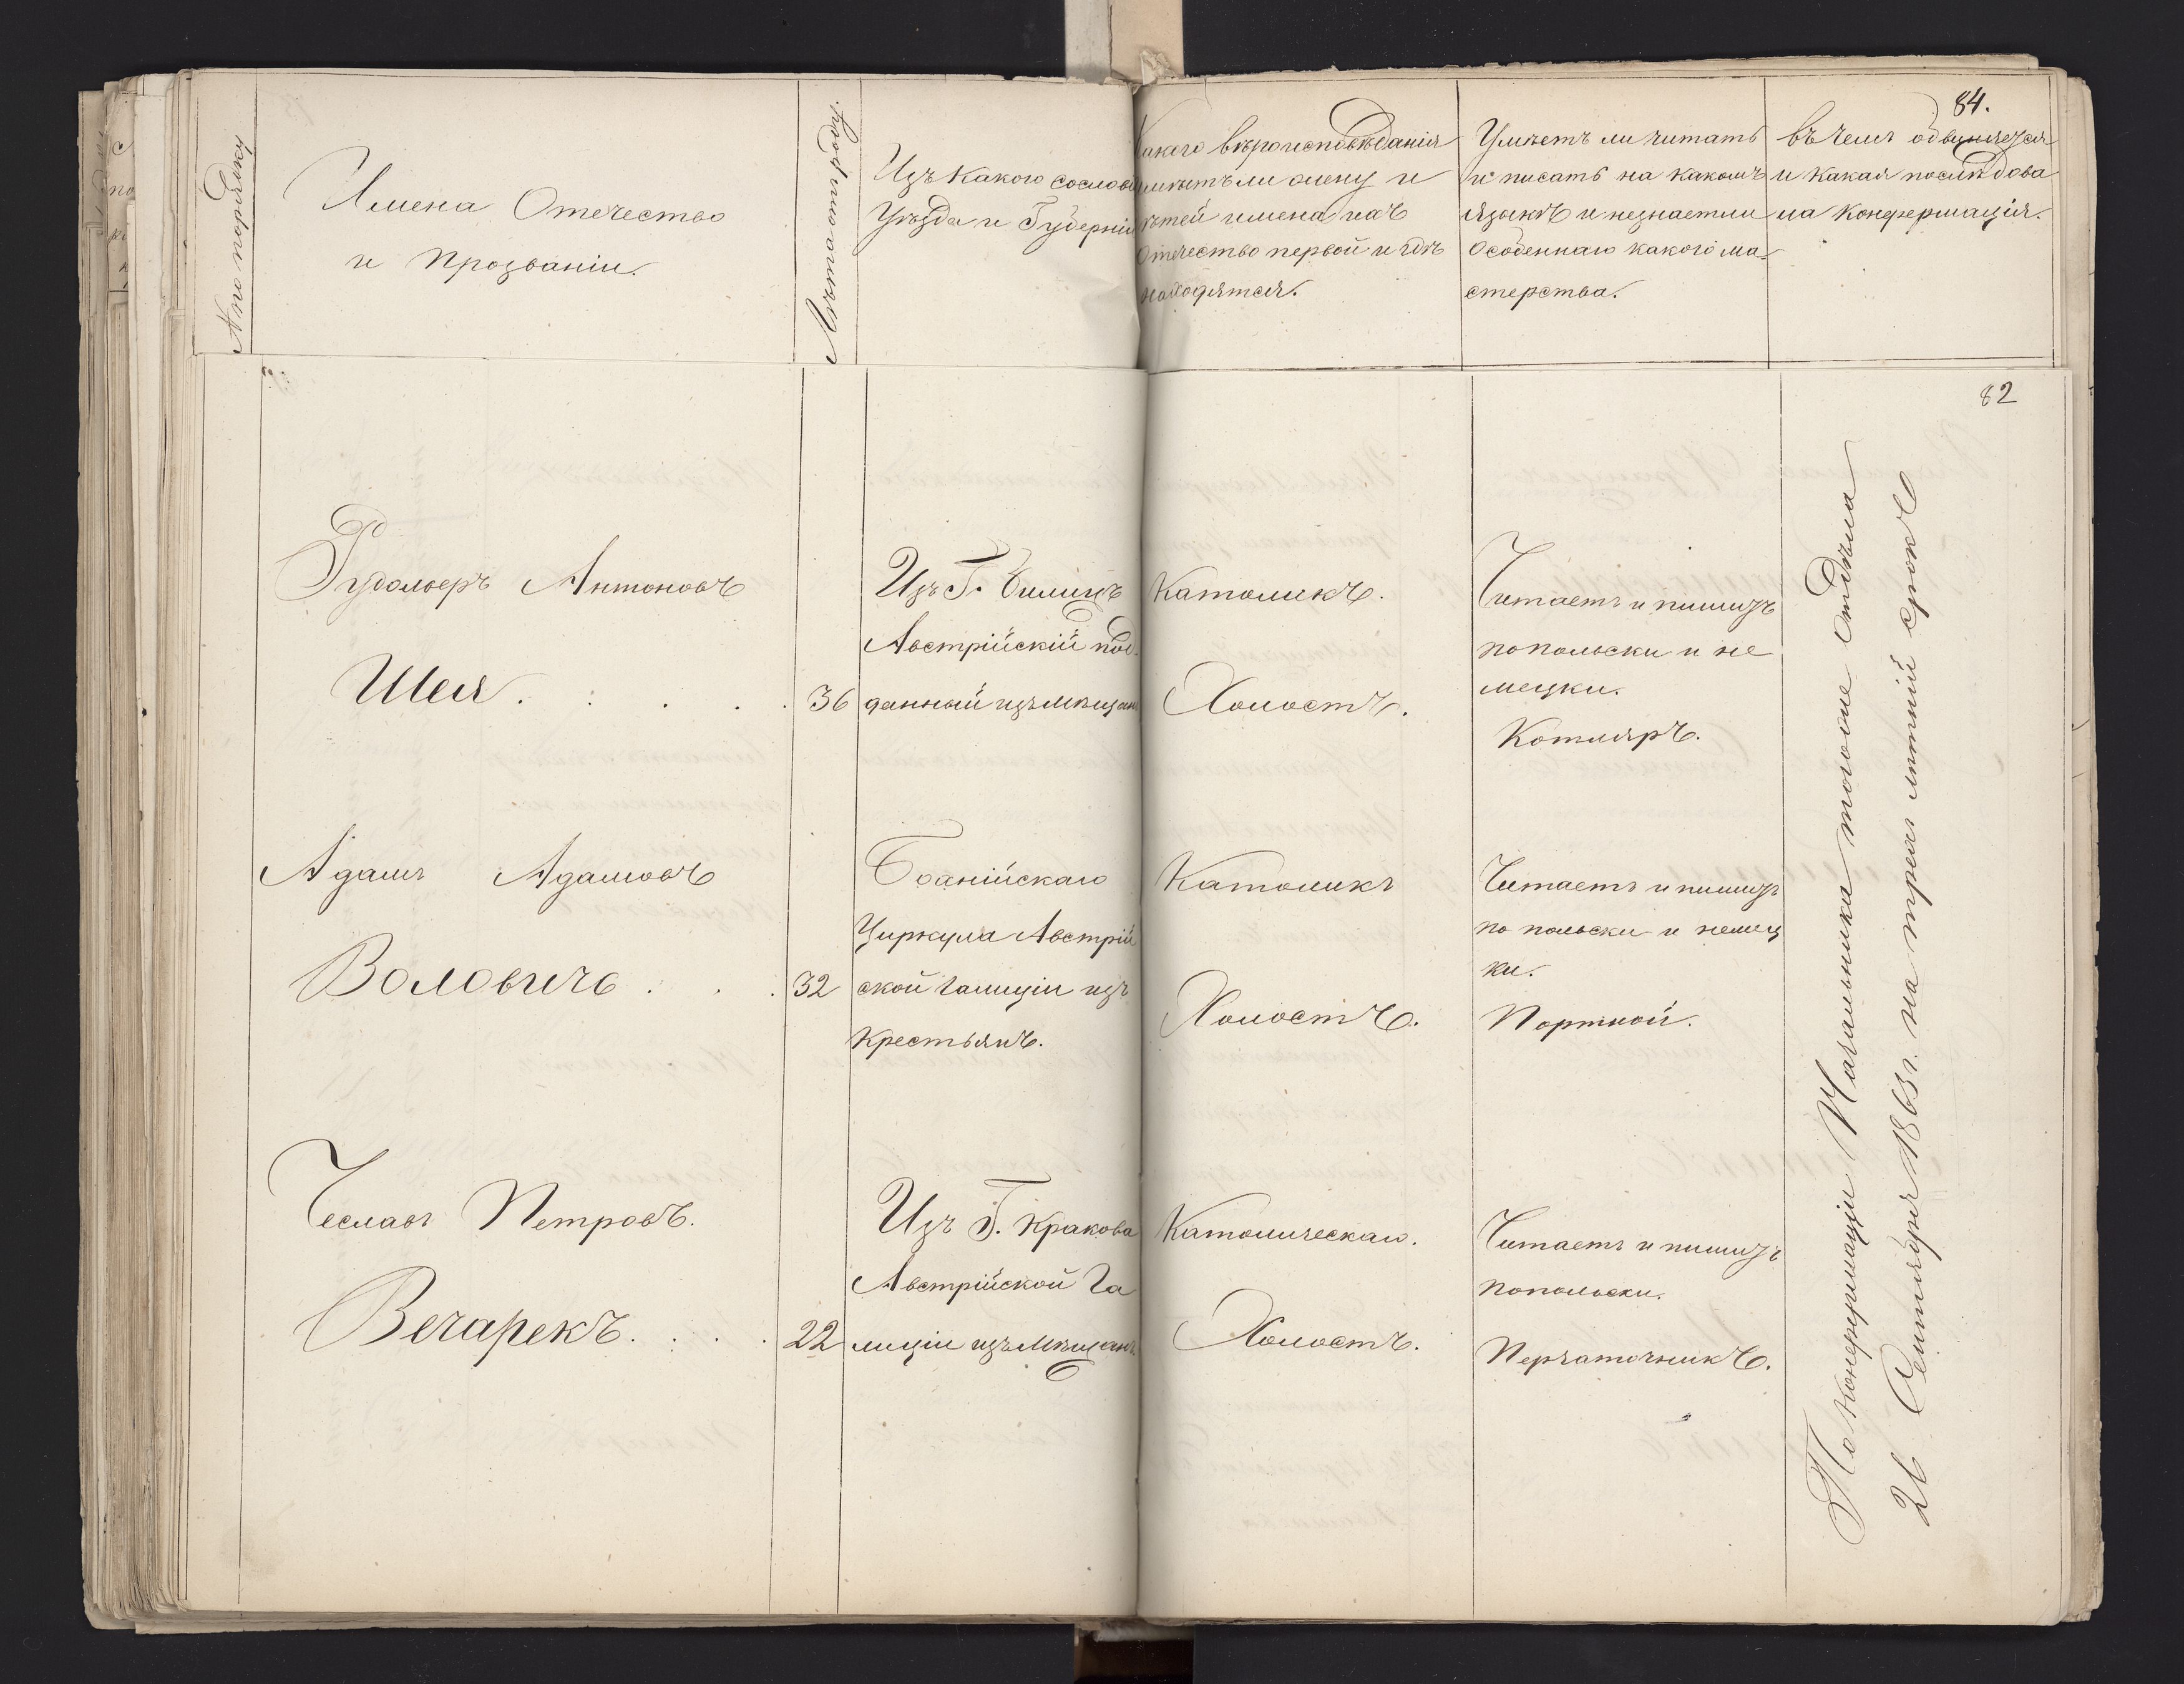 84.
№ по порядку
Имена Отечество
и Прозваніи.
Лѣта отъ роду.
Изъ какого сословія
Уѣзда и Губерніи
Какого вѣроисповѣданія
имѣетъ ли жену и
дѣтей имена ихъ
Отечество первой и гдѣ
находятся.
Умѣетъ ли читать
и писать на какомъ
языкѣ и незнаетли
Особеннаго какого ма-
стерства.
въ чемъ обвиняется
и какая послѣдова
ла конфермація.
82
Рудольфъ Антоновъ
Шея . . . . .
36
Изъ Г. Билицъ
Австрійскій под-
данный изъ мѣщанъ
Католикъ.
Холостъ.
Читаетъ и пишитъ
попольски и не
мецки.
Котляръ.
Адамъ Адамовъ
Воловичъ . . .
32
Циркула Австрій
ской Галиціи изъ
Крестьянъ.
Католикъ
Холостъ.
Читаетъ и пишитъ
по польски и немец
ки.
Портной.
Чеславъ Петровъ.
Вечарекъ. . . .
22
Изъ Г. Кракова
Австрійской Га
лиціи изъ мѣщанъ
Католическаго.
Холостъ.
Читаетъ и пишитъ
попольски.
Перчаточникъ.
По Конфермаціи Начальника тогоже Отдѣла
26 Сентября 1863 г. на трехъ лѣтній срокъ